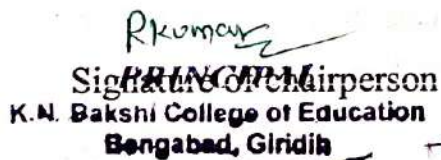 Rkumar
Signature of chairperson
PRINCIPAL
K.N. Bakshi College of Education
Bengabad, Giridih